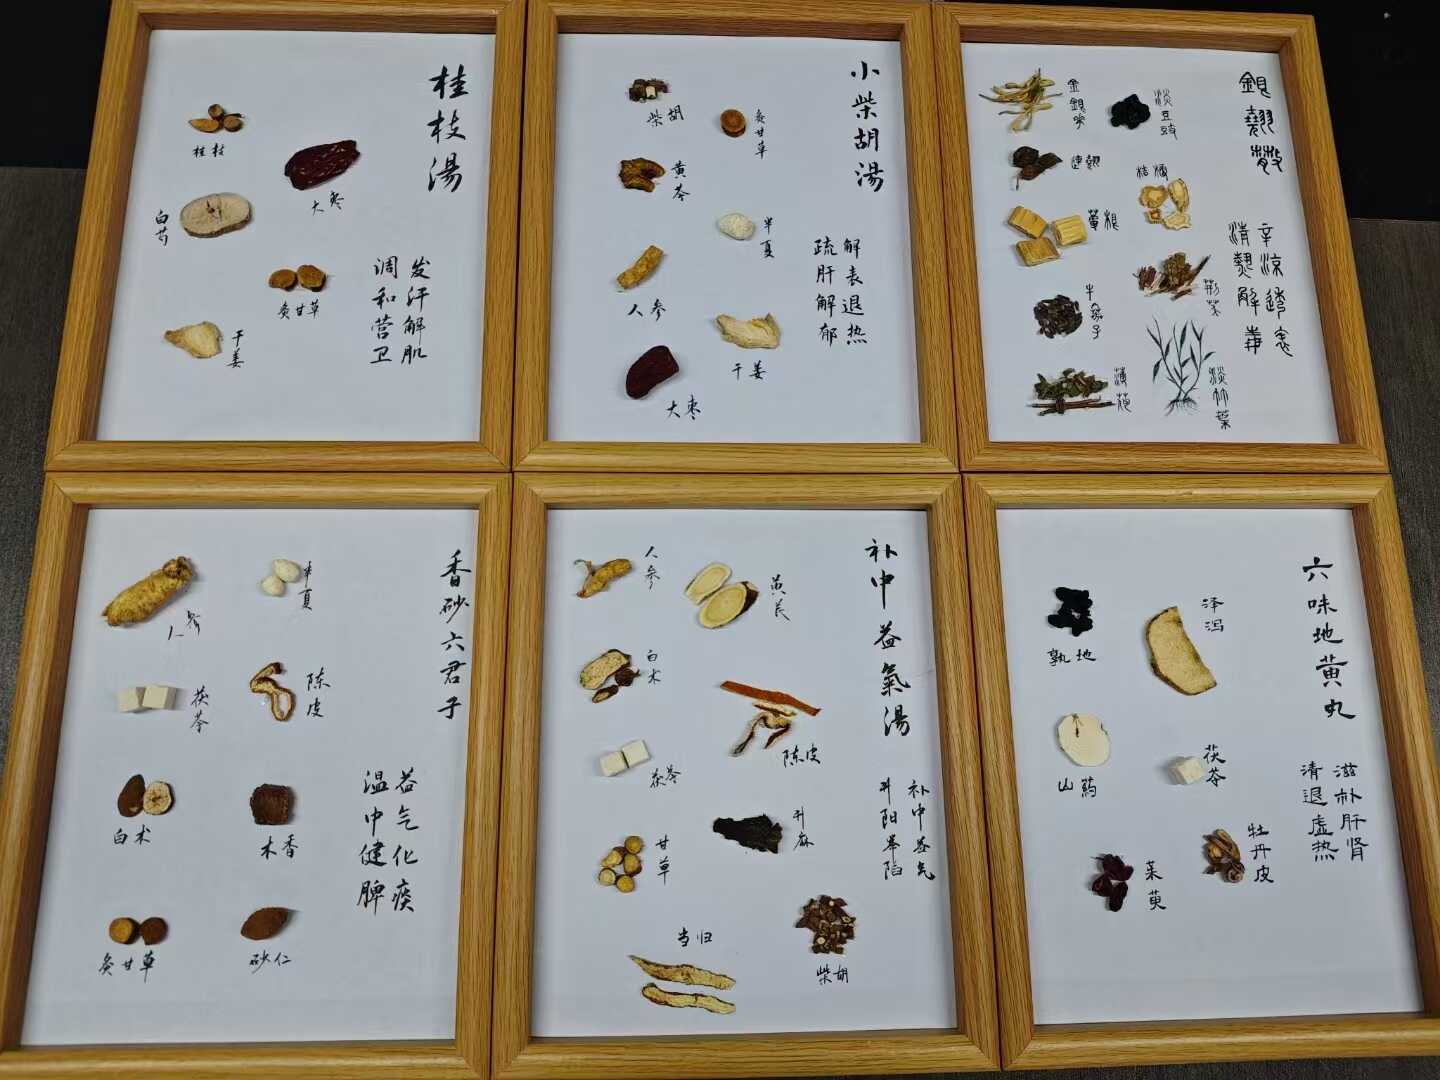 桂枝湯
发汗解肌
调和营卫
桂枝
大枣
白芍
炙甘草
干姜
小柴胡湯
解表退热
疏肝解郁
柴胡
炙甘草
黄芩
半夏
人参
干姜
大枣
銀翹散
辛涼透表
清熱解毒
金銀花
淡豆豉
連翹
桔梗
葦根
荊芥
牛蒡子
薄荷
淡竹葉
香砂六君子
益气化痰
温中健脾
人参
半夏
茯苓
陈皮
白术
木香
炙甘草
砂仁
补中益氣湯
补中益气
升阳举陷
人参
黄芪
白术
陈皮
茯苓
升麻
甘草
当归
柴胡
六味地黄丸
滋补肝肾
清退虚热
孰地
泽泻
山药
茯苓
牡丹皮
茱萸